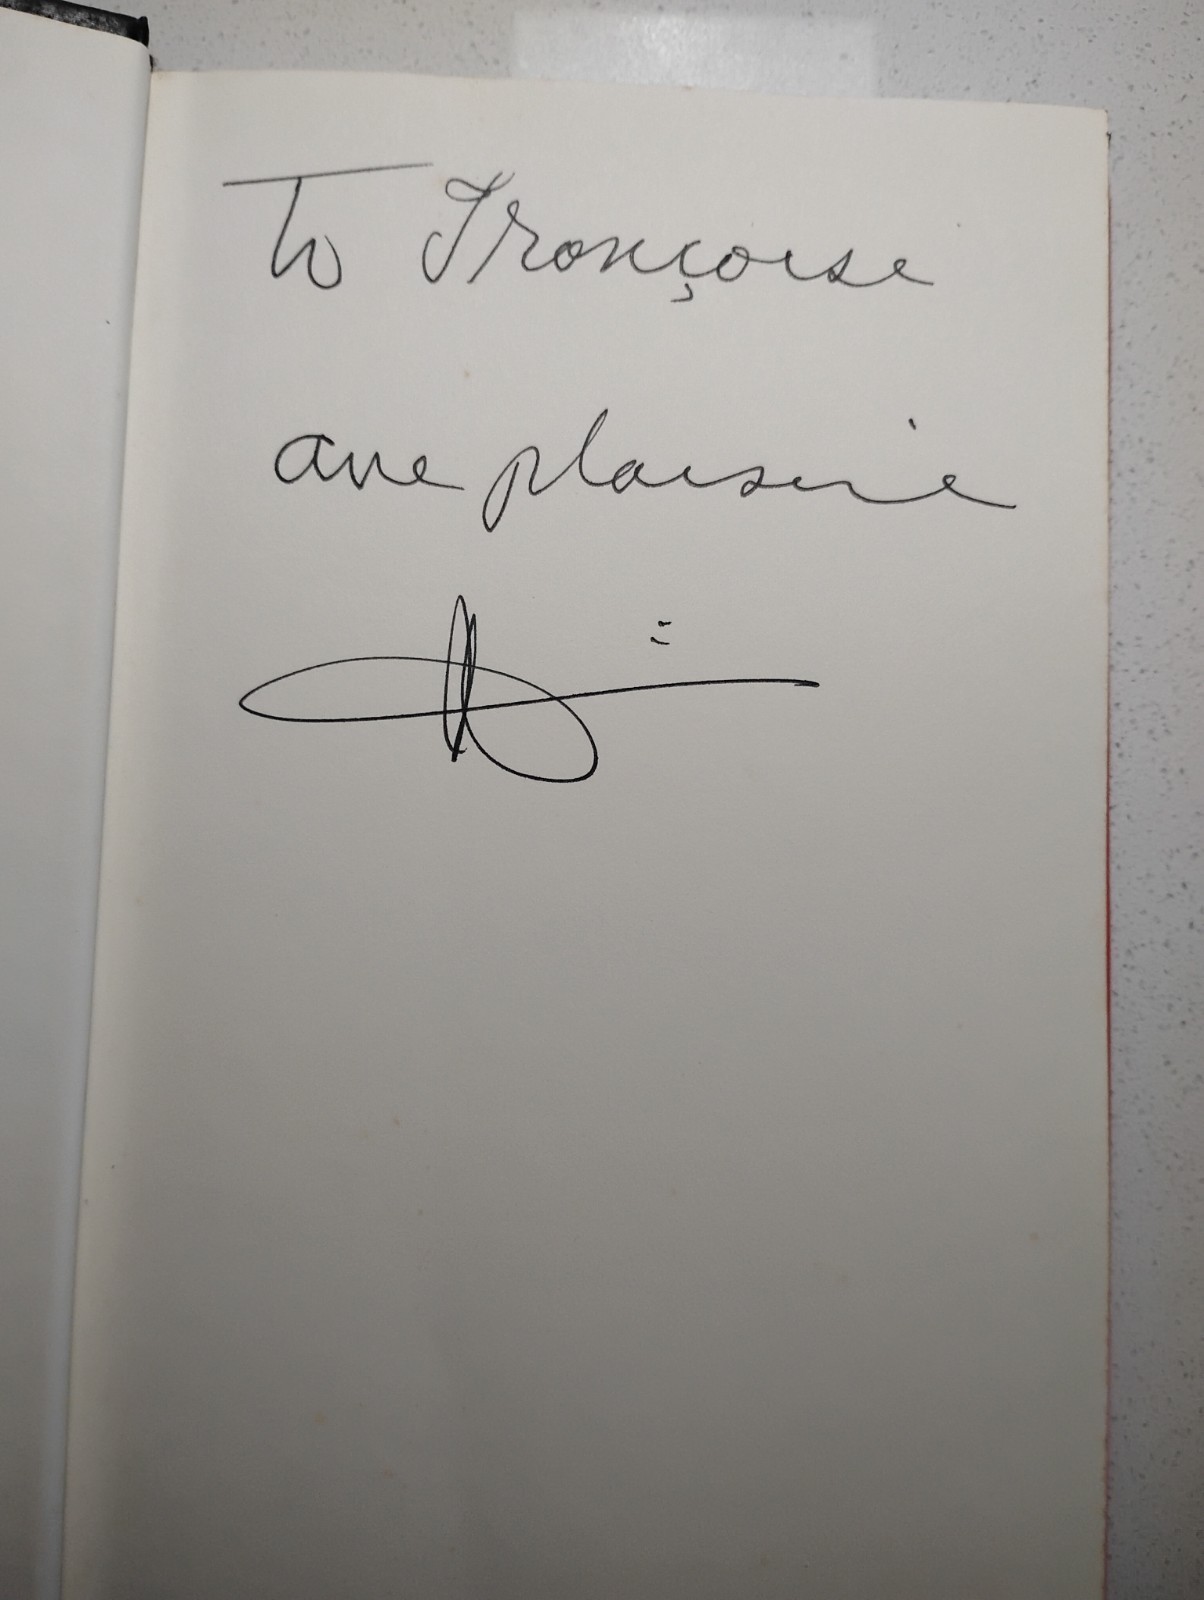 To Françoise
ave plaisire